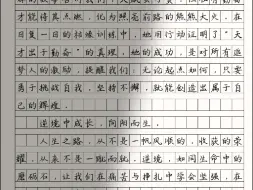 才能将其点燃,化为照亮前路的熊熊大火。在
日复一日的枯燥训练中,她用行动证明了“天
才出于勤奋”的真理。她的成功,是对所有追
梦人的激励,提醒我们:无论起点如何,只要
勇于挑战自我,持之不懈,就能创造出属于自
己的辉煌。
逆境中成长,向阳而生。
人生之路,从不是一帆风顺的,收获的荣
耀,从来不是一蹴而就。逆境,如同生命中的
磨砺石,让我们在痛苦与挣扎中学会坚强,在